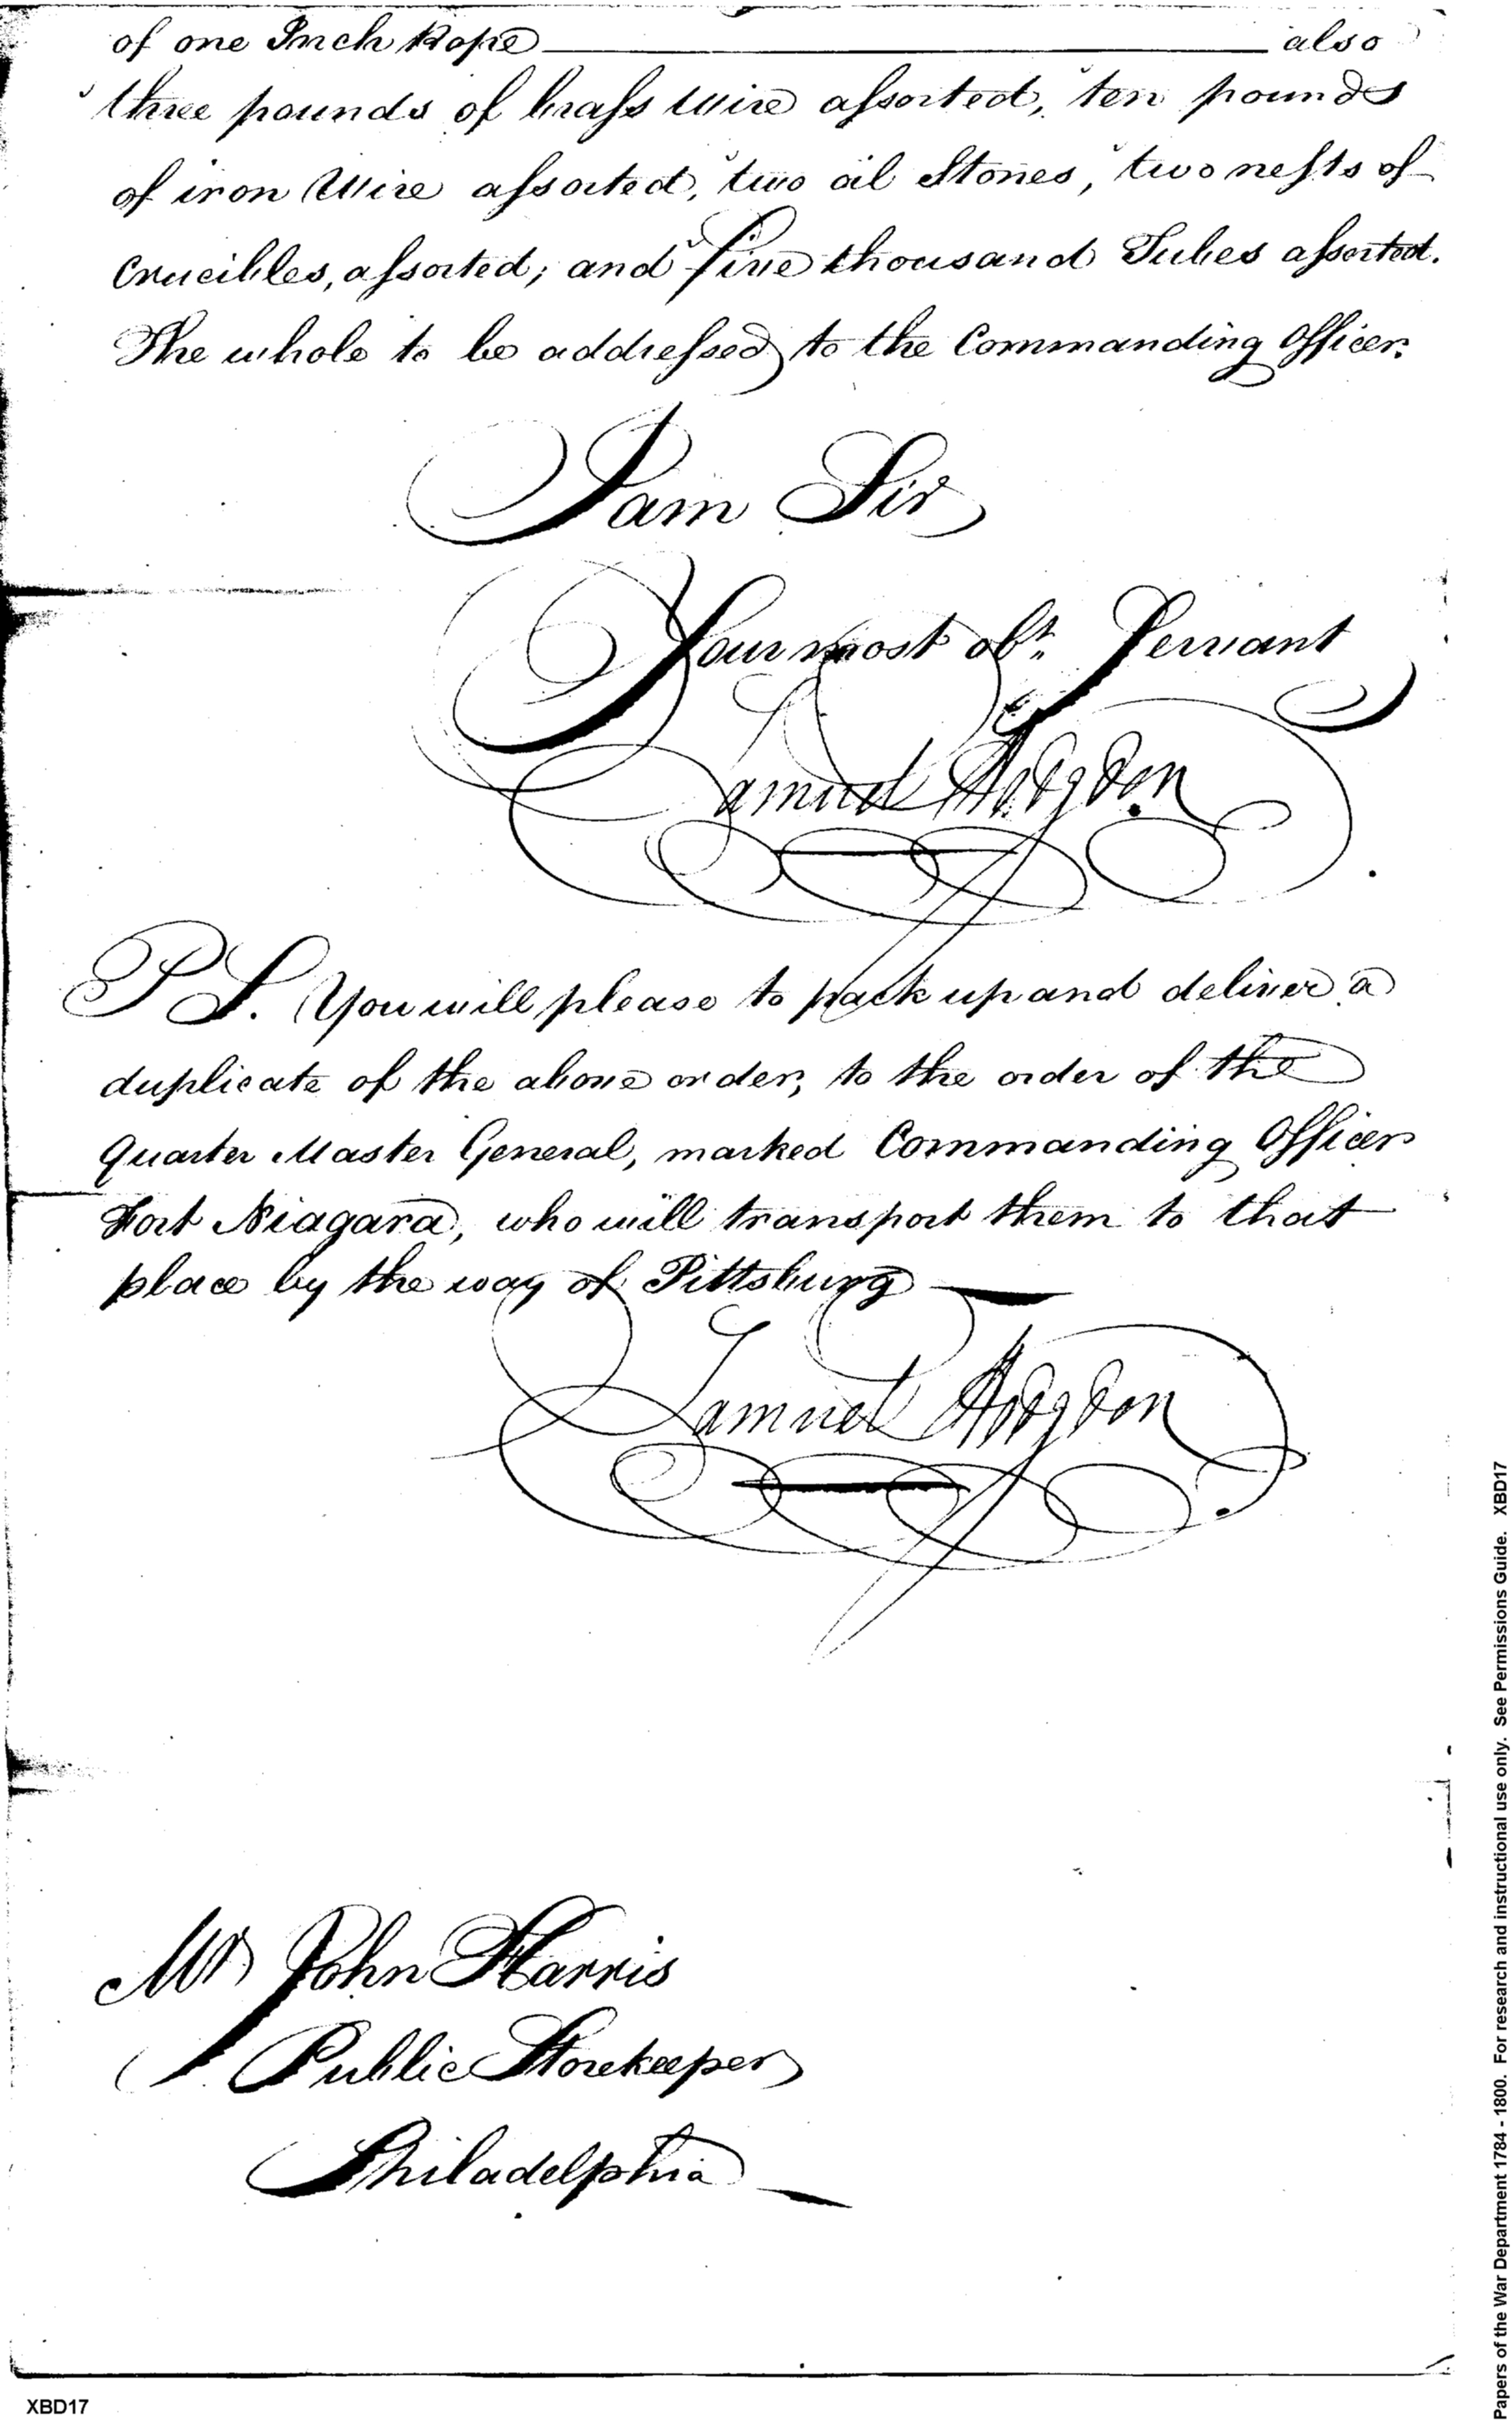 of one Inch Rope ______ also
three pounds of brass Wire assorted, ten pounds
of iron Wire assorted, two oil Stones, two nests of
Crucibles, assorted; and five thousand Tubes assorted.
The whole to be addressed to the Commanding Officer.
I am Sir
Your most obt. Servant
Samuel Hodgdon
P S. You will please to pack up and deliver a
duplicate of the above order, to the order of the
Quarter Master General, marked Commanding Officer
Fort Niagara, who will transport them to that
place by the way of Pittsburg —
Samuel Hodgdon
Mr John Harris
Public Storekeeper
Philadelphia —
XBD17
Papers of the War Department 1784 - 1800. For research and instructional use only. See Permissions Guide. XBD17